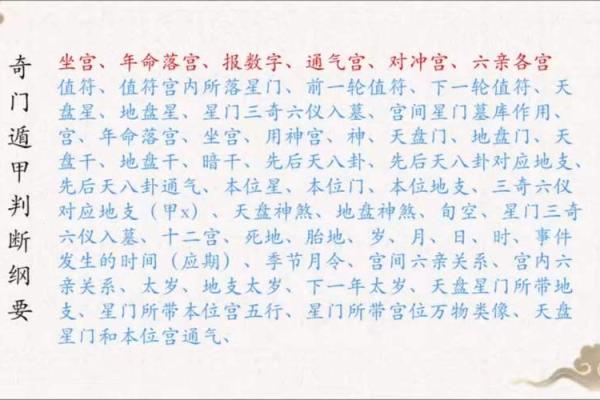 奇门遁甲判断纲要
坐宫、年命落宫、报数字、通气宫、对冲宫、六亲各宫
值符、值符宫内所落星门、前一轮值符、下一轮值符、天
盘星、地盘星、星门三奇六仪入墓、宫间星门墓库作用、
宫、年命落宫、坐宫、用神宫、神、天盘门、地盘门、天
盘干、地盘干、暗干、先后天八卦、先后天八卦对应地支、
先后天八卦通气、本位星、本位门、本位地支、三奇六仪
对应地支（甲x）、天盘神煞、地盘神煞、旬空、星门三奇
六仪入墓、十二宫、死地、胎地、岁、月、日、时、事件
发生的时间（应期）、季节月令、宫间六亲关系、宫内六
亲关系、太岁、地支太岁、下一年太岁、天盘星门所带地
支、星门所带本位宫五行、星门所带宫位万物类像、天盘
星门和本位宫通气、